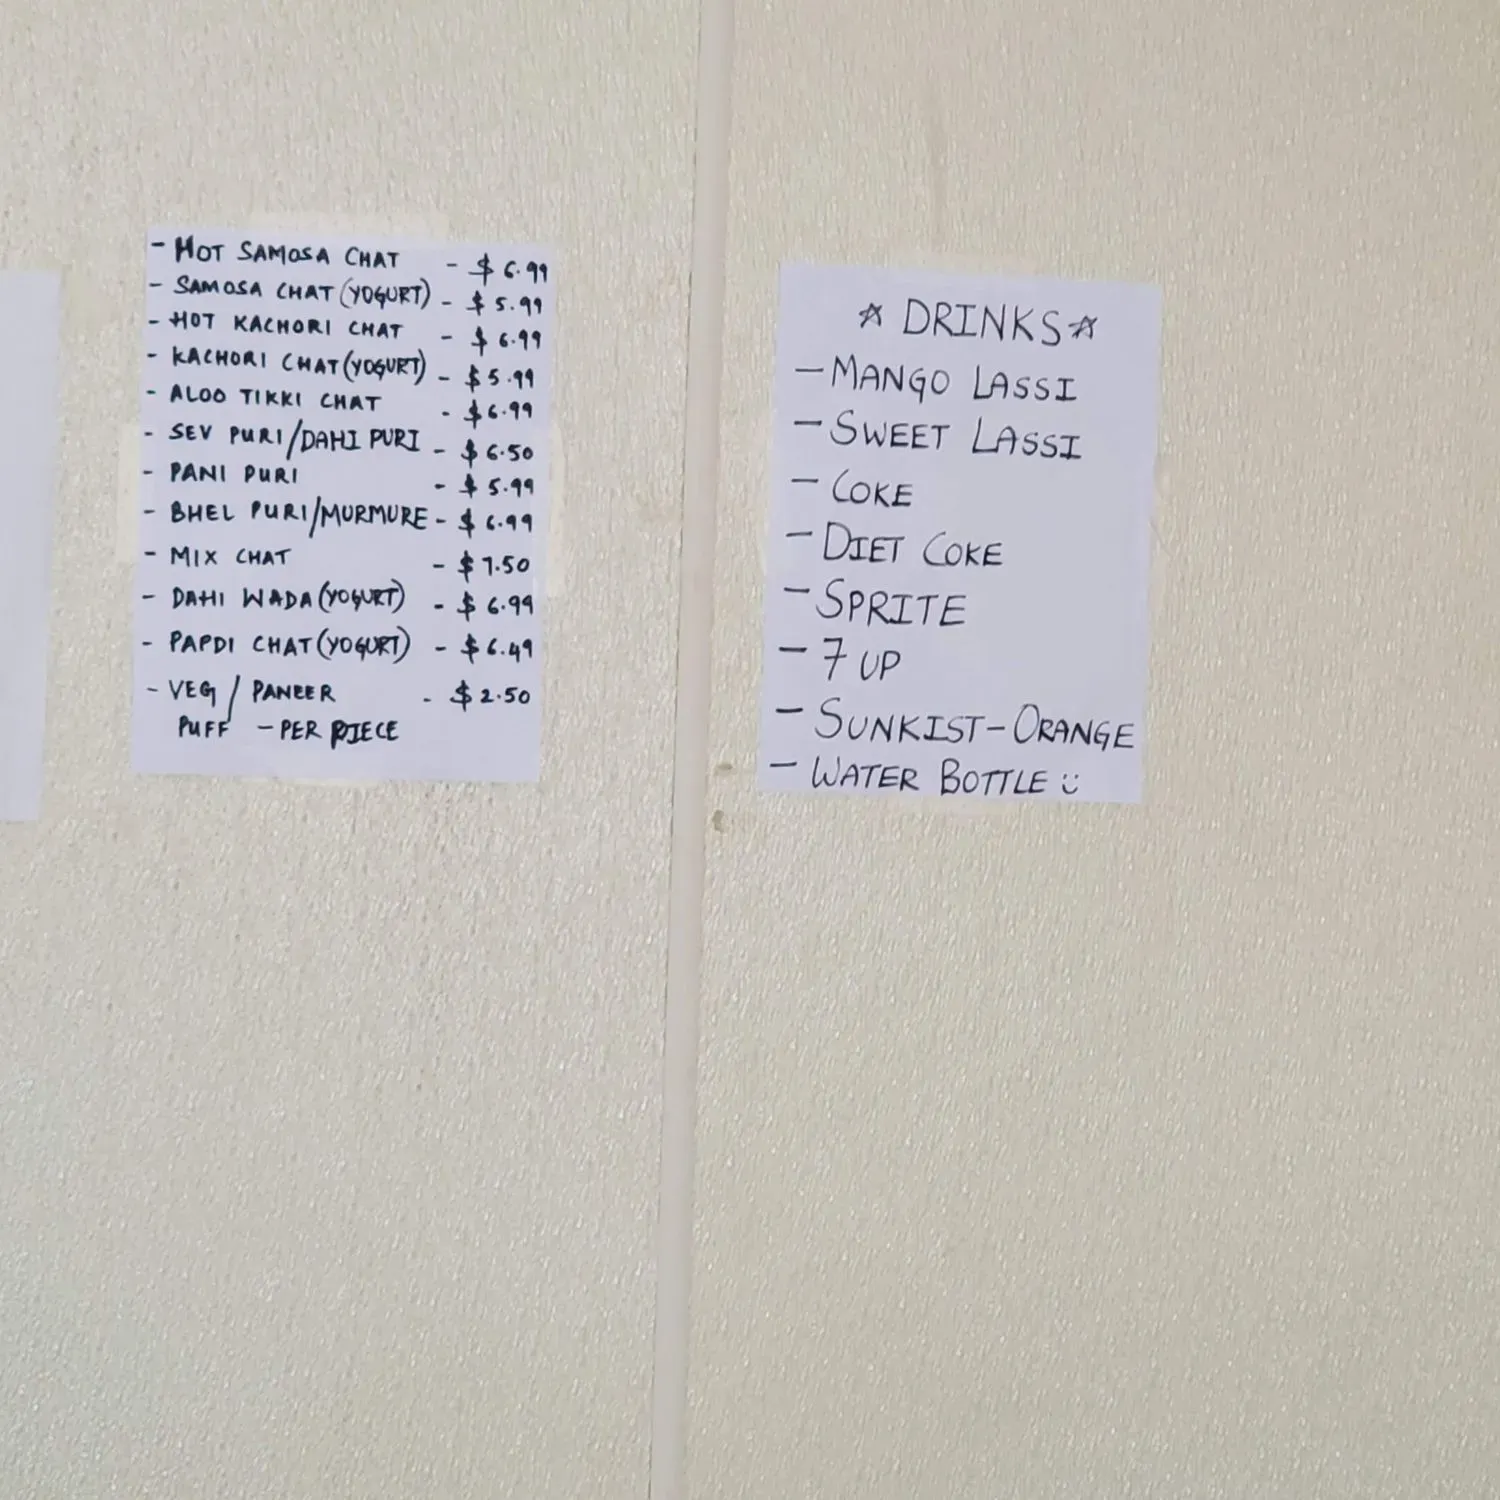 - HOT SAMOSA CHAT - $ 6.99
- SAMOSA CHAT (YOGURT) - $ 5.99
- HOT KACHORI CHAT - $ 6.99
- KACHORI CHAT (YOGURT) - $ 5.99
- ALOO TIKKI CHAT - $ 6.99
- SEV PURI/DAHI PURI - $ 6.50
- PANI PURI - $ 5.99
- BHEL PURI/MURMURE - $ 6.99
- MIX CHAT - $ 7.50
- DAHI WADA (YOGURT) - $ 6.99
- PAPDI CHAT (YOGURT) - $ 6.49
- VEG / PANEER - $ 2.50
PUFF - PER PIECE
☆ DRINKS ☆
- MANGO LASSI
- SWEET LASSI
- COKE
- DIET COKE
- SPRITE
- 7 UP
- SUNKIST-ORANGE
- WATER BOTTLE :)